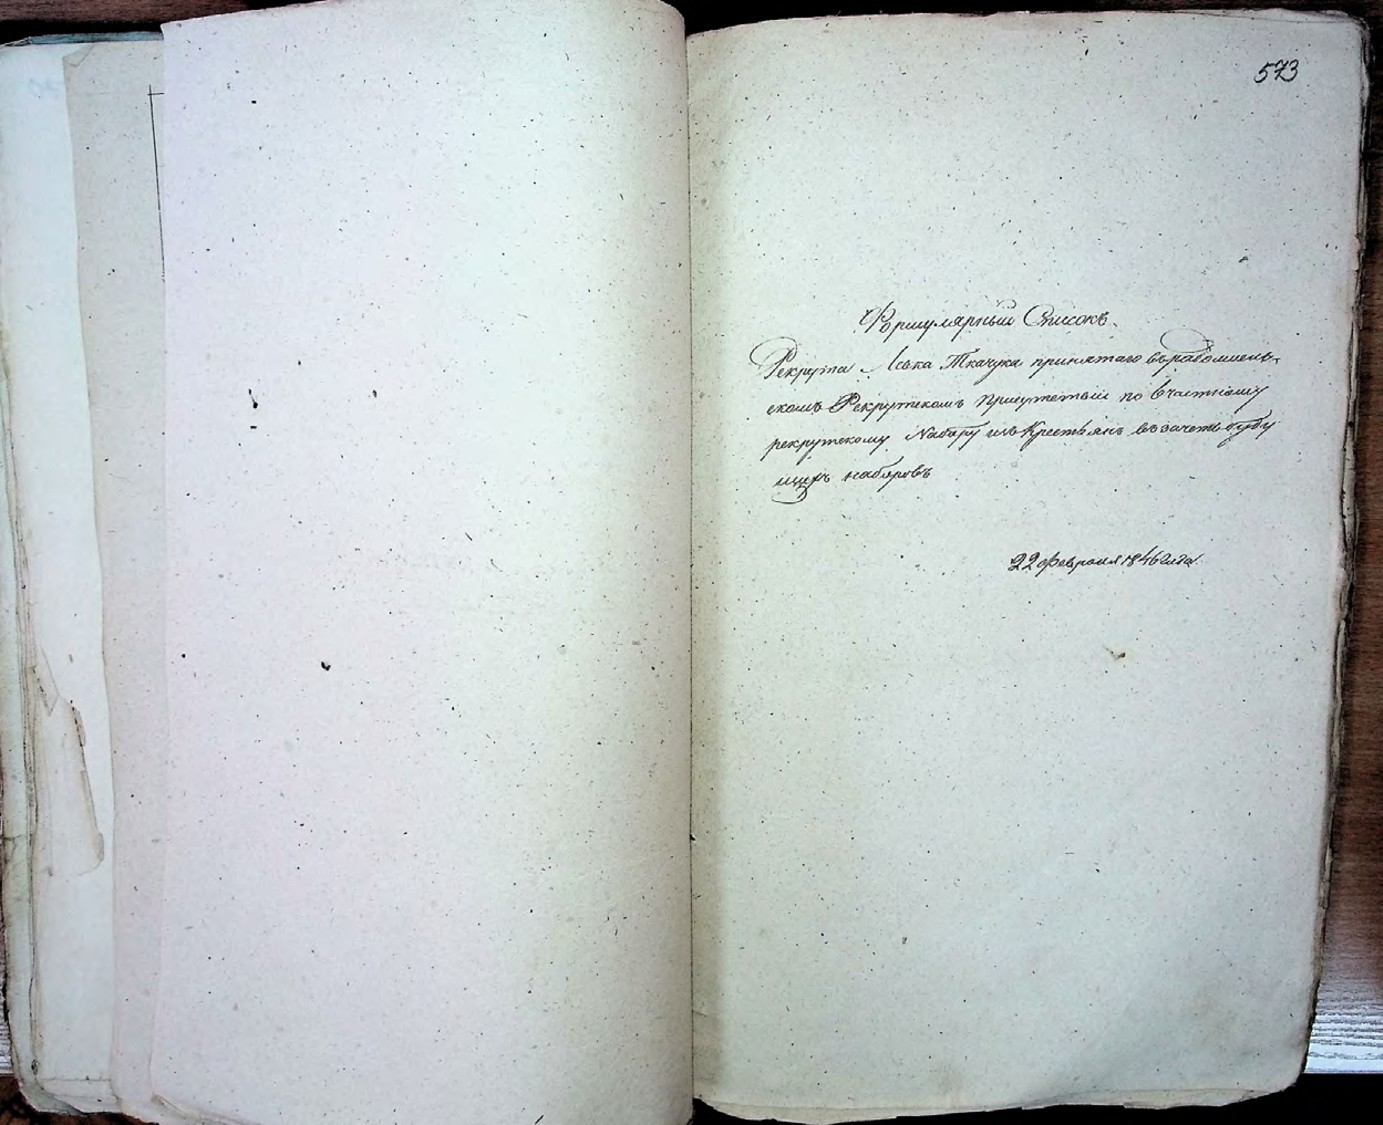 573
Формулярный Списокъ
Рекрута Леска Ткачука принятаго въ радомисль-
скомъ Рекрутскомъ Присутствіи по Частному
рекрутскому Набору изъ Крестьянъ въ зачетъ буду
щихъ наборовъ
22 февраля 1846 года